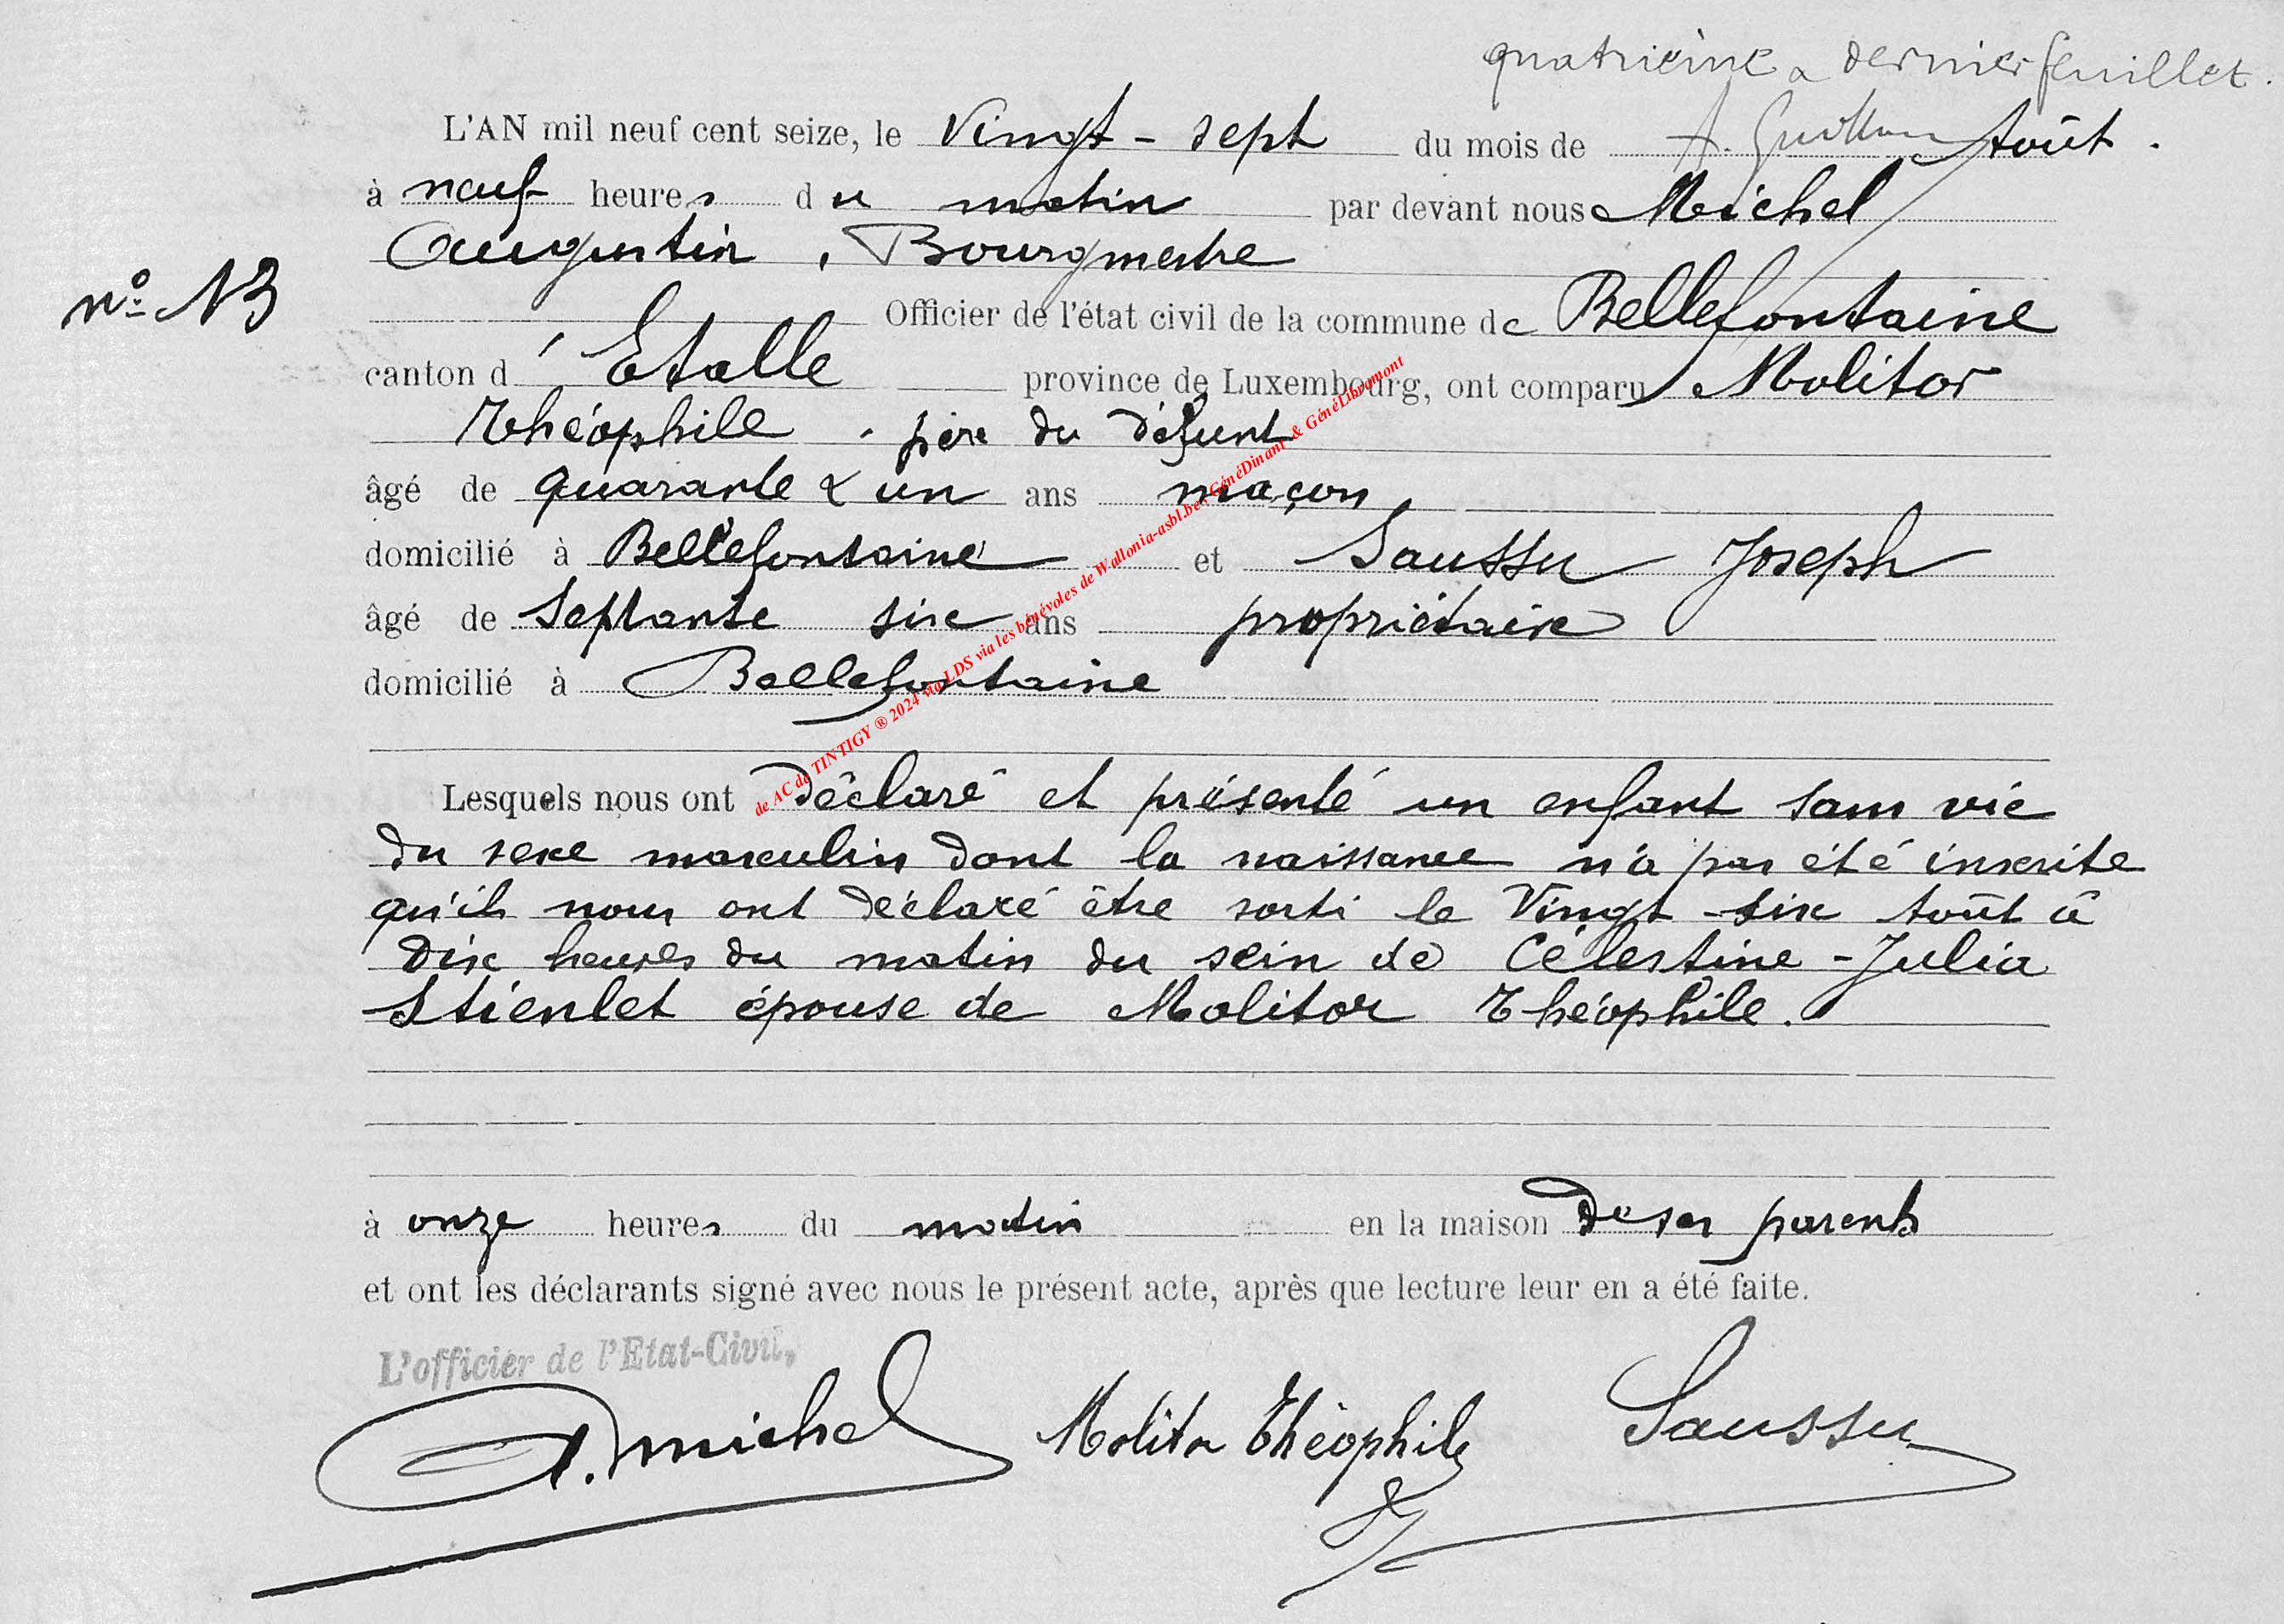 quatrième & dernier feuillet.
L'AN mil neuf cent seize, le Vingt-sept du mois de Août.
à neuf heures du matin par devant nous Michel
Augustin, Bourgmestre
n° 13
Officier de l'état civil de la commune de Bellefontaine
canton d'Etalle province de Luxembourg, ont comparu Molitor
Théophile. père du défunt
âgé de quarante & un ans maçon
domicilié à Bellefontaine et Saussu Joseph
âgé de septante six ans propriétaire
domicilié à Bellefontaine
de AC de TINTIGY ® 2024 via LDS via les bénévoles de Wallonia-asbl.be - GénéDinant & GénéLibramont
Lesquels nous ont déclaré et présenté un enfant sans vie
du sexe masculin dont la naissance n'a pas été inscrite
qu'ils nous ont déclaré être sorti le Vingt-six Août à
dix heures du matin du sein de Célestine-Julia
Stienlet épouse de Molitor Théophile.
à onze heures du matin en la maison de ses parents
et ont les déclarants signé avec nous le présent acte, après que lecture leur en a été faite.
L'officier de l'Etat-Civil,
A. Michel Molitor Théophile Saussu